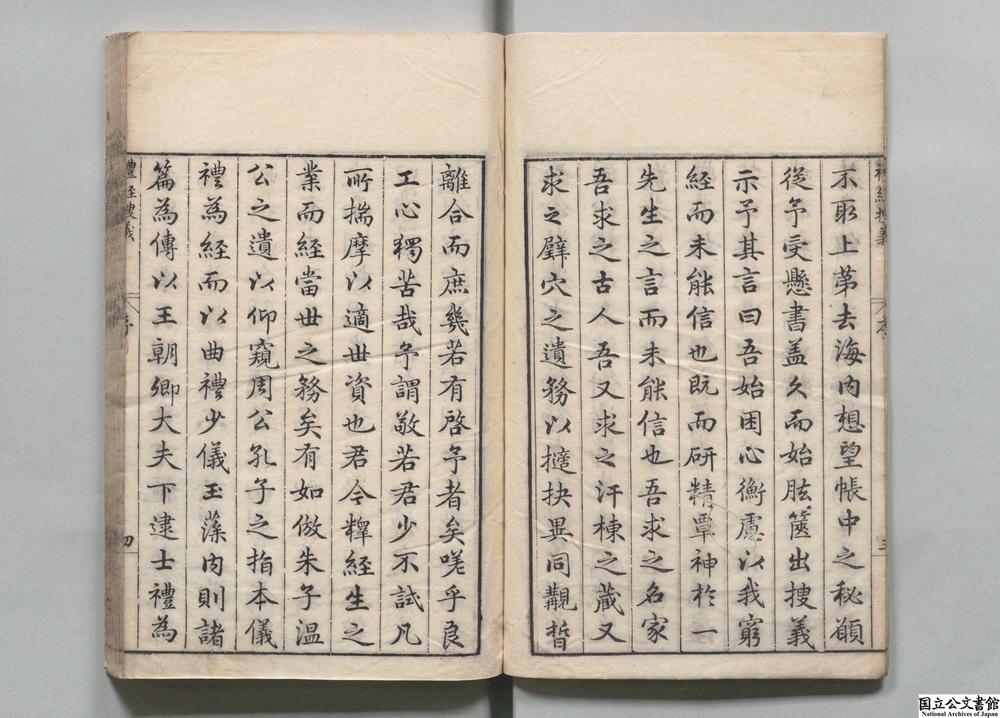 不取上第去海内想望帳中之秘願
從予受懸書盖久而始胠篋出搜義
示予其言曰吾始困心衡慮以我窮
經而未能信也既而研精覃神於一
先生之言而未能信也吾求之名家
吾求之古人吾又求之汗棟之藏又
求之壁穴之遺務以擿抉異同覼晳
離合而庶幾若有啓予者矣嗟乎良
工心獨苦哉予謂敬若君少不試凡
所揣摩以適世資也君今釋經生之
業而經當世之務矣有如倣朱子温
公之遺以仰窺周公孔子之指本儀
禮為經而以曲禮少儀玉藻内則諸
篇為傳以王朝卿大夫下逮士禮為
禮經搜義
序
四
国立公文書館
National Archives of Japan